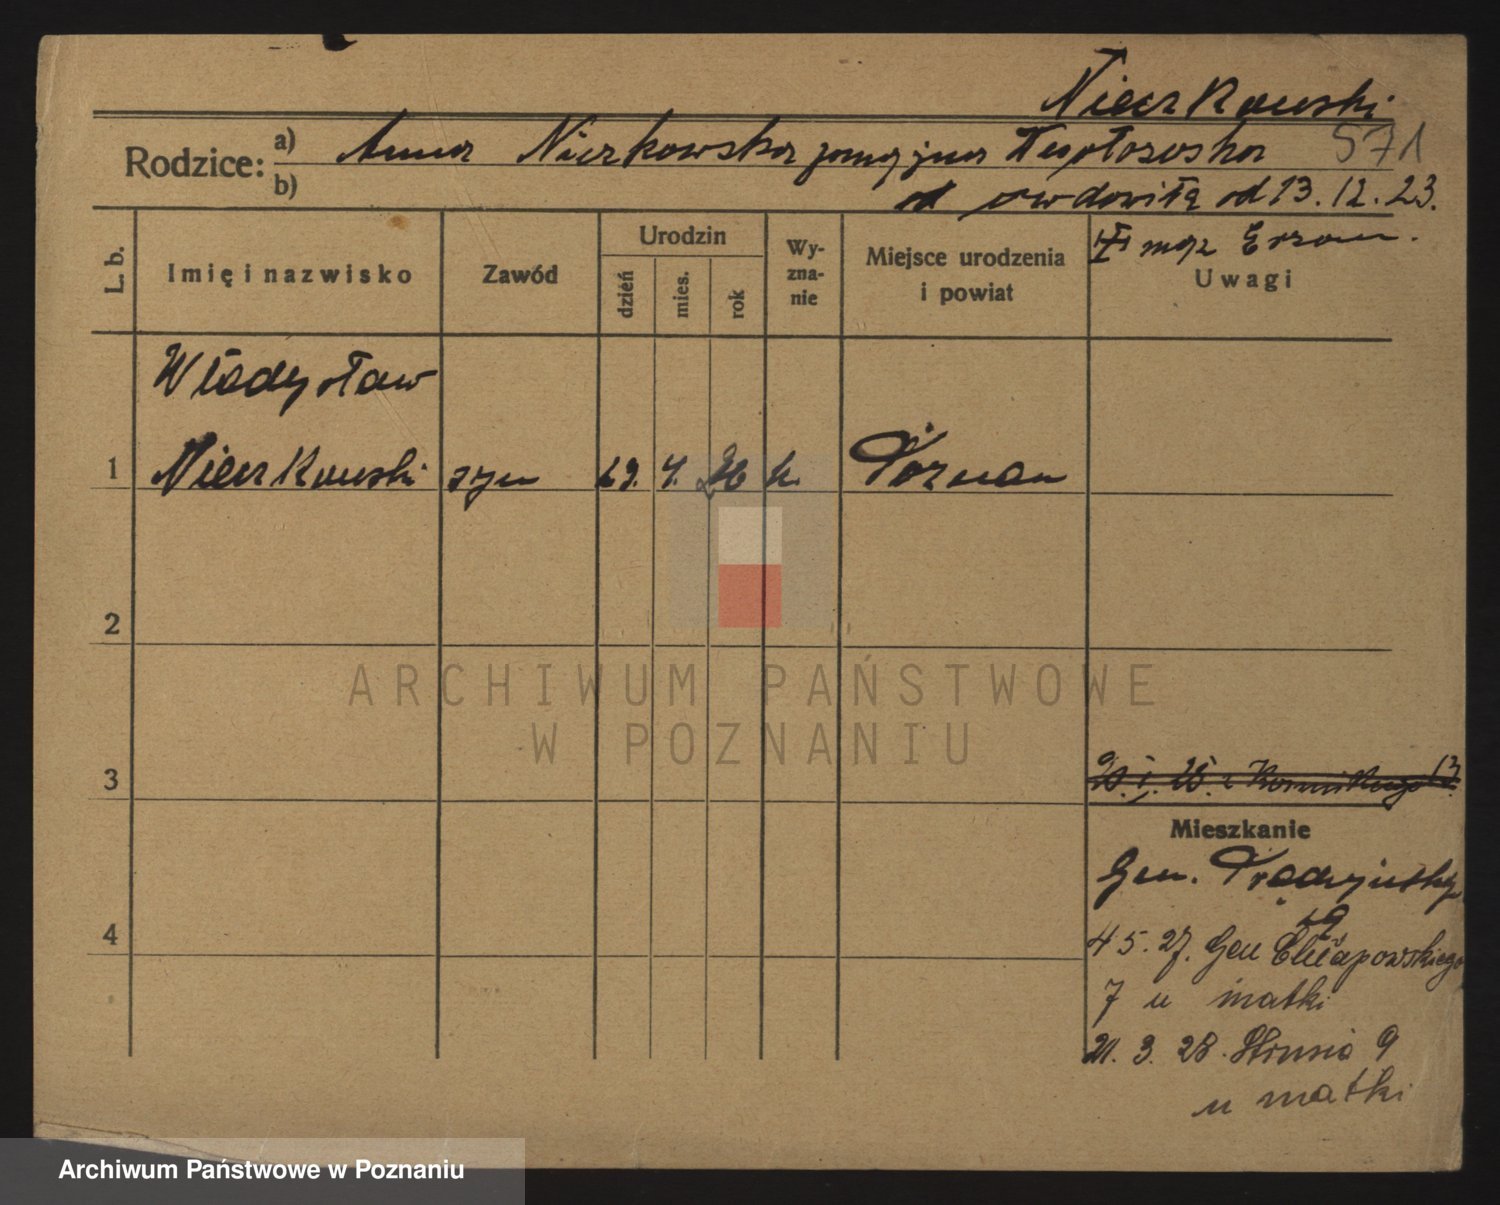 Nierkowski
571
Rodzice:
a) Anna Nierkowska
b) owdowiła od 13. 12. 23.
L. b.
Imię i nazwisko
Zawód
Urodzin
dzień
mies.
rok
Wy-
zna-
nie
Miejsce urodzenia
i powiat
Uwagi
Władysław
1 Nierkowski syn 4. k. Poznań
2
3
4
Mieszkanie
Gen. Prądzyńskiego
49
4 5. 27. Gen Chłapowskiego
7 u matki
21. 3. 28. Strusia 9
u matki
ARCHIWUM PAŃSTWOWE
W POZNANIU
Archiwum Państwowe w Poznaniu